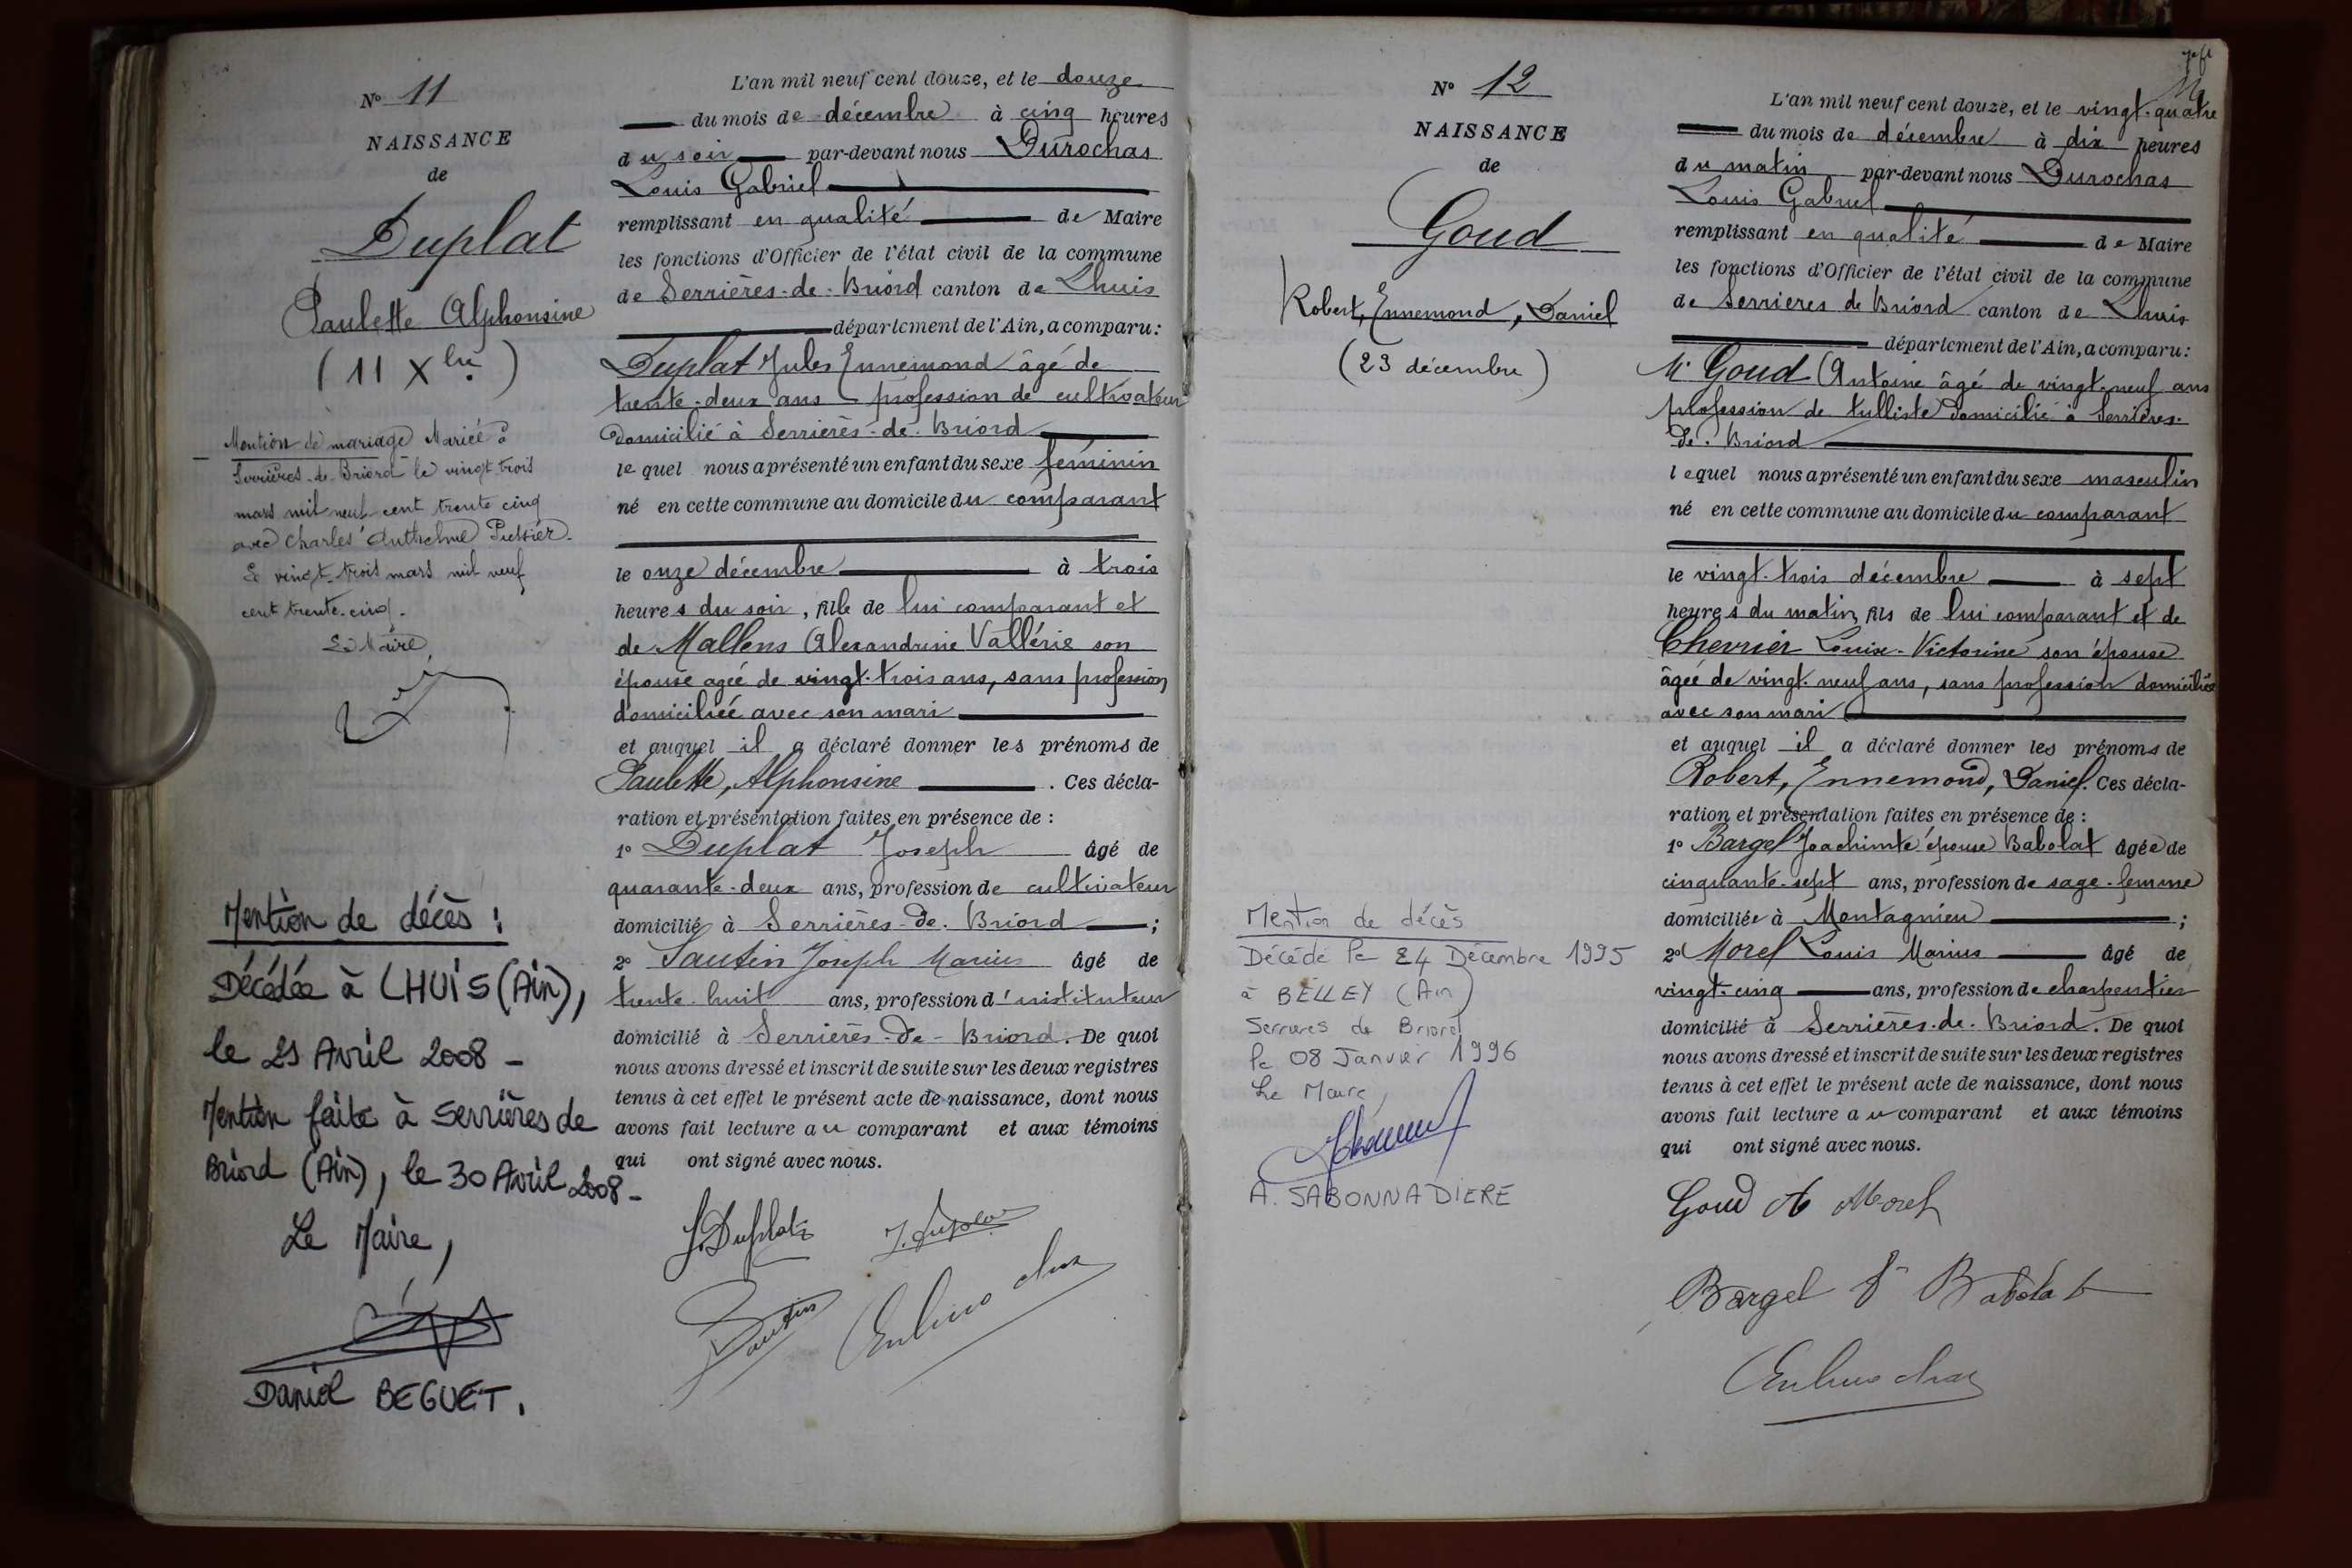 N° 11
NAISSANCE
de
Duplat
Paulette Alphonsine
(11 Xbre)
Mention de mariage Mariée à
Serrières-de-Briord le vingt trois
mars mil neuf cent trente cinq
avec Charles Anthelme
Le vingt-trois mars mil neuf
cent trente-cinq.
Le Maire,
Mention de décès :
Décédée à LHUIS (Ain),
le 21 Avril 2008 -
Mention faite à Serrières de
Briord (Ain), le 30 Avril 2008 -
Le Maire,
Daniel BEGUET.
L'an mil neuf cent douze, et le douze
du mois de décembre à cinq heures
du soir par-devant nous Durochas
Louis Gabriel
remplissant en qualité de Maire
les fonctions d'Officier de l'état civil de la commune
de Serrières-de-Briord canton de Lhuis
département de l'Ain, a comparu :
Duplat Jules Ennemond âgé de
trente-deux ans profession de cultivateur
domicilié à Serrières-de-Briord
lequel nous a présenté un enfant du sexe féminin
né en cette commune au domicile du comparant
le onze décembre à trois
heures du soir, fille de lui comparant et
de Mallens Alexandrine Vallérie son
épouse agée de vingt-trois ans, sans profession
domiciliée avec son mari
et auquel il a déclaré donner les prénoms de
Paulette, Alphonsine. Ces décla-
ration et présentation faites en présence de :
1° Duplat Joseph âgé de
quarante-deux ans, profession de cultivateur
domicilié à Serrières-de-Briord ;
2° Sautin Joseph Marius âgé de
trente-huit ans, profession d'instituteur
domicilié à Serrières-de-Briord. De quoi
nous avons dressé et inscrit de suite sur les deux registres
tenus à cet effet le présent acte de naissance, dont nous
avons fait lecture au comparant et aux témoins
qui ont signé avec nous.
J. Duplat
Sautin
N° 12
NAISSANCE
de
Goud
Robert, Ennemond, Daniel
(23 décembre)
Mention de décès
Décédé le 24 Décembre 1995
à BELLEY (Ain)
Serrières de Briord
le 08 Janvier 1996
Le Maire,
A. SABONNADIERE
L'an mil neuf cent douze, et le vingt-quatre
du mois de décembre à dix heures
du matin par-devant nous Durochas
Louis Gabriel
remplissant en qualité de Maire
les fonctions d'Officier de l'état civil de la commune
de Serrières de Briord canton de Lhuis
département de l'Ain, a comparu :
Mr Goud Antoine âgé de vingt-neuf ans
profession de tulliste domicilié à Serrières-
de-Briord
lequel nous a présenté un enfant du sexe masculin
né en cette commune au domicile du comparant
le vingt-trois décembre à sept
heures du matin, fils de lui comparant et de
Chevrier Louise-Victorine son épouse
âgée de vingt-neuf ans, sans profession domiciliée
avec son mari
et auquel il a déclaré donner les prénoms de
Robert, Ennemond, Daniel. Ces décla-
ration et présentation faites en présence de :
1° Bargel Joachimte épouse Babolat âgée de
cinquante-sept ans, profession de sage-femme
domiciliée à Montagnieu ;
2° Morel Louis Marius âgé de
vingt-cinq ans, profession de charpentier
domicilié à Serrières-de-Briord. De quoi
nous avons dressé et inscrit de suite sur les deux registres
tenus à cet effet le présent acte de naissance, dont nous
avons fait lecture au comparant et aux témoins
qui ont signé avec nous.
Goud A Morel
Bargel Babolat